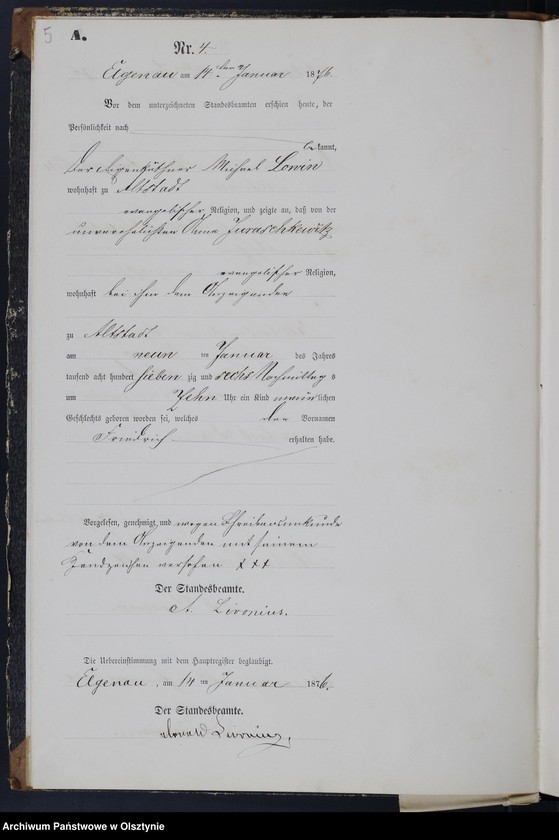 5
A.
Nr. 4.
Elgenau am 14ten Januar 1876.
Vor dem unterzeichneten Standesbeamten erschien heute, der
Persönlichkeit nach
bekannt,
der Eigenkäthner Michael Lowin
wohnhaft zu Altstadt
evangelischer Religion, und zeigte an, daß von der
unverehelichten Anna Juraschkewitz
evangelischer Religion,
wohnhaft bei ihm dem Anzeigenden
zu Altstadt
am neun ten Januar des Jahres
tausend acht hundert sieben zig und sechs Nachmittag s
um Zehn Uhr ein Kind männlichen
Geschlechts geboren worden sei, welches den Vornamen
Friedrich erhalten habe.
Vorgelesen, genehmigt, und wegen Schreibensunkunde
von dem Anzeigenden mit seinem
Handzeichen versehen + + +
Der Standesbeamte.
A. Livonius.
Die Uebereinstimmung mit dem Hauptregister beglaubigt.
Elgenau, am 14 ten Januar 1876.
Der Standesbeamte.
Livonius.
Archiwum Państwowe w Olsztynie